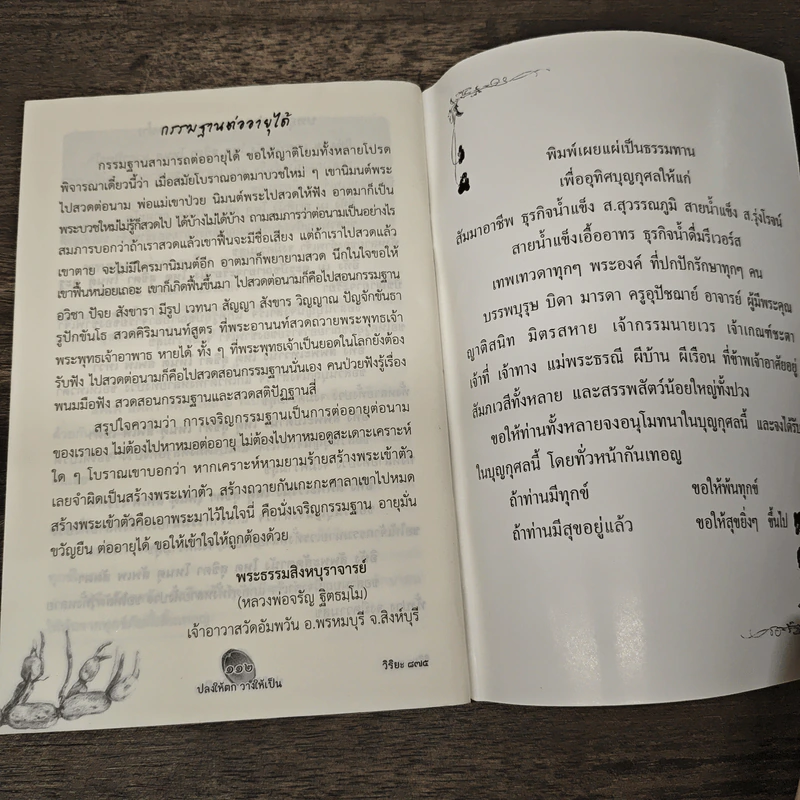 กรรมฐานต่ออายุได้
กรรมฐานสามารถต่ออายุได้ ขอให้ญาติโยมทั้งหลายโปรด
พิจารณาเดี๋ยวนี้ว่า เมื่อสมัยโบราณอาตมาบวชใหม่ ๆ เขานิมนต์พระ
ไปสวดต่อนาม พ่อแม่เขาป่วย นิมนต์พระไปสวดให้ฟัง อาตมาก็เป็น
พระบวชใหม่ไม่รู้ก็สวดไป ได้บ้างไม่ได้บ้าง ถามสมภารว่าต่อนามเป็นอย่างไร
สมภารบอกว่าถ้าเราสวดแล้วเขาฟื้นจะมีชื่อเสียง แต่ถ้าเราไปสวดแล้ว
เขาตาย จะไม่มีใครมานิมนต์อีก อาตมาก็พยายามสวด นึกในใจขอให้
เขาฟื้นหน่อยเถอะ เขาก็เกิดฟื้นขึ้นมา ไปสวดต่อนามก็คือไปสอนกรรมฐาน
อวิชา ปัจย สังขารา มีรูป เวทนา สัญญา สังขาร วิญญาณ ปัญจักขันธา
รูปักขันโธ สวดคิริมานนท์สูตร ที่พระอานนท์สวดถวายพระพุทธเจ้า
พระพุทธเจ้าอาพาธ หายได้ ทั้ง ๆ ที่พระพุทธเจ้าเป็นยอดในโลกยังต้อง
รับฟัง ไปสวดต่อนามก็คือไปสวดสอนกรรมฐานนั่นเอง คนป่วยฟังรู้เรื่อง
พนมมือฟัง สวดสอนกรรมฐานและสวดสติปัฏฐานสี่
สรุปใจความว่า การเจริญกรรมฐานเป็นการต่ออายุต่อนาม
ของเราเอง ไม่ต้องไปหาหมอต่ออายุ ไม่ต้องไปหาหมอดูสะเดาะเคราะห์
ใด ๆ โบราณเขาบอกว่า หากเคราะห์หามยามร้ายสร้างพระเข้าตัว
เลยจำผิดเป็นสร้างพระเท่าตัว สร้างถวายกันเกะกะศาลาเขาไปหมด
สร้างพระเข้าตัวคือเอาพระมาไว้ในใจนี่ คือนั่งเจริญกรรมฐาน อายุมั่น
ขวัญยืน ต่ออายุได้ ขอให้เข้าใจให้ถูกต้องด้วย
พระธรรมสิงหบุราจารย์
(หลวงพ่อจรัญ ฐิตธมฺโม)
เจ้าอาวาสวัดอัมพวัน อ.พรหมบุรี จ.สิงห์บุรี
๑๑๒
ปลงให้ตก วางให้เป็น
วิริยะ ๘๗๕
พิมพ์เผยแผ่เป็นธรรมทาน
เพื่ออุทิศบุญกุศลให้แก่
สัมมาอาชีพ ธุรกิจน้ำแข็ง ส.สุวรรณภูมิ สายน้ำแข็ง ส.รุ่งโรจน์
สายน้ำแข็งเอื้ออาทร ธุรกิจน้ำดื่มรีเวอร์ส
เทพเทวดาทุกๆ พระองค์ ที่ปกปักรักษาทุกๆ คน
บรรพบุรุษ บิดา มารดา ครูอุปัชฌาย์ อาจารย์ ผู้มีพระคุณ
ญาติสนิท มิตรสหาย เจ้ากรรมนายเวร เจ้าเกณฑ์ชะตา
เจ้าที่ เจ้าทาง แม่พระธรณี ผีบ้าน ผีเรือน ที่ข้าพเจ้าอาศัยอยู่
สัมภเวสีทั้งหลาย และสรรพสัตว์น้อยใหญ่ทั้งปวง
ขอให้ท่านทั้งหลายจงอนุโมทนาในบุญกุศลนี้ และจงได้รับ
ในบุญกุศลนี้ โดยทั่วหน้ากันเทอญ
ถ้าท่านมีทุกข์ ขอให้พ้นทุกข์
ถ้าท่านมีสุขอยู่แล้ว ขอให้สุขยิ่งๆ ขึ้นไป